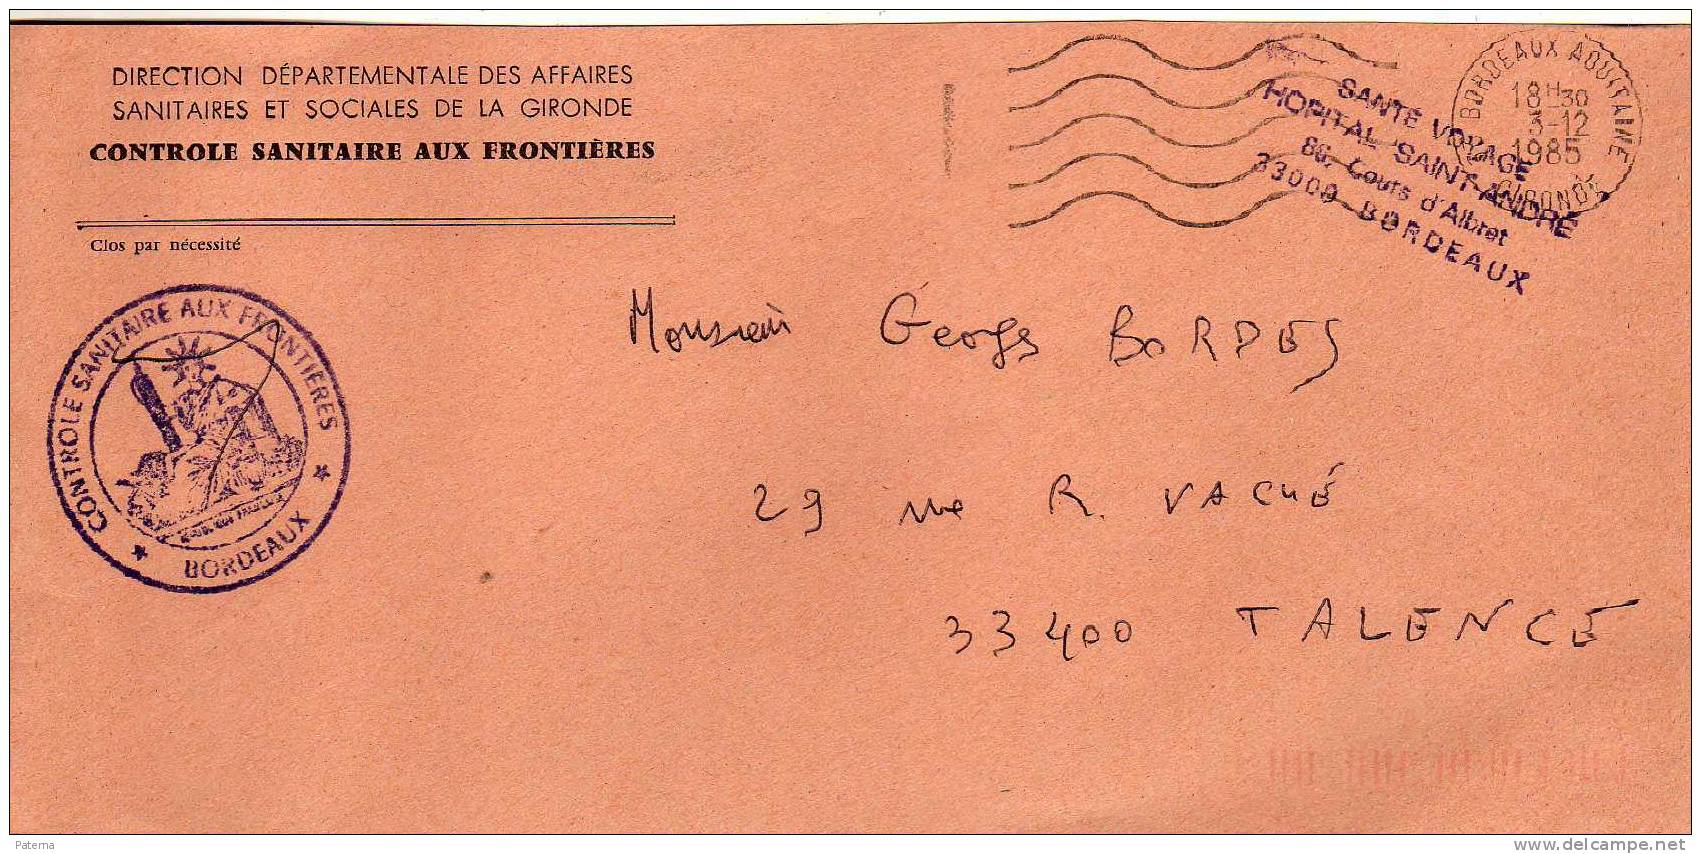 DIRECTION DÉPARTEMENTALE DES AFFAIRES
SANITAIRES ET SOCIALES DE LA GIRONDE
CONTROLE SANITAIRE AUX FRONTIÈRES
Clos par nécessité
CONTROLE SANITAIRE AUX FRONTIERES
BORDEAUX
SANTÉ VOYAGE
HOPITAL SAINT-ANDRÉ
86, Cours d'Albret
33000 BORDEAUX
BORDEAUX AQUITAINE
18H30
3-12
1985
GIRONDE
Monsieur Georges BORDES
29 rue R. VACHÉ
33400 TALENCE
Paterna
delcampe.net